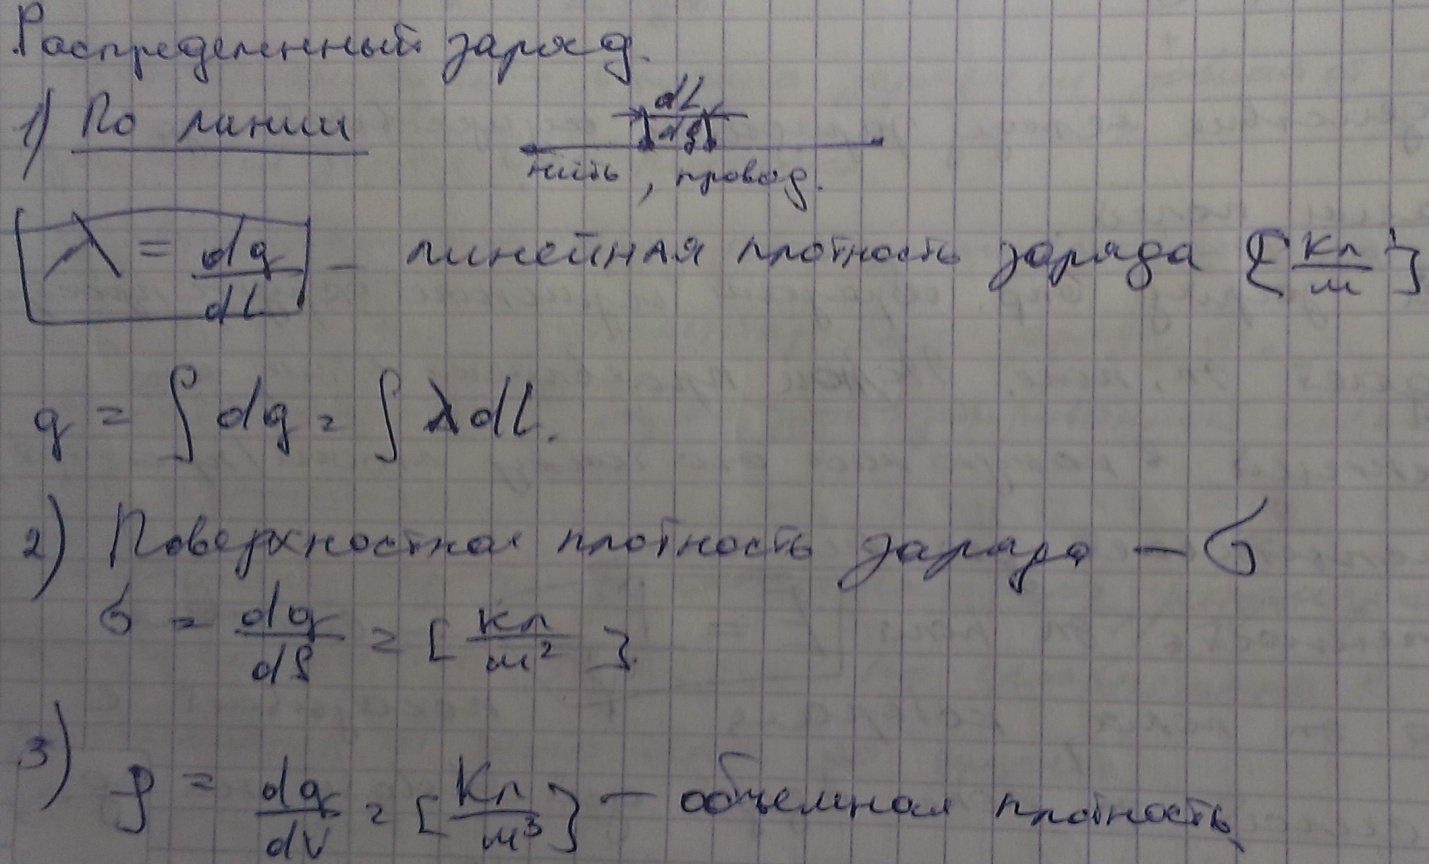 Распределенный заряд.
1) По линии
dL
dq
нить, провод.
λ = dq/dL – линейная плотность заряда [Кл/м]
q = ∫ dq = ∫ λ dL.
2) Поверхностная плотность заряда – σ
σ = dq/dS = [Кл/м²].
3) ρ = dq/dV = [Кл/м³] – объемная плотность